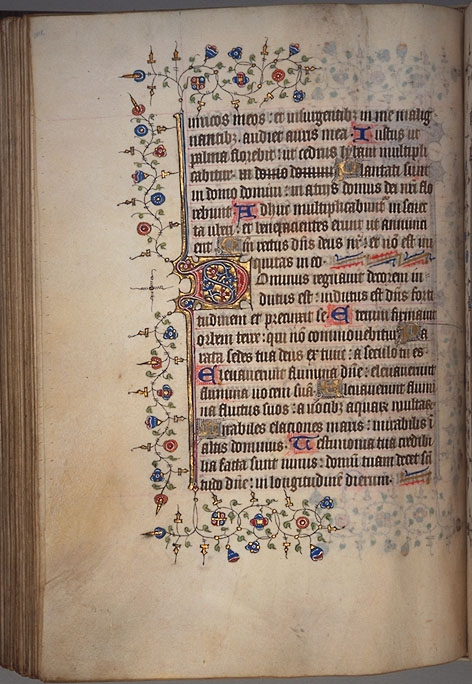 imicos meos: et insurgentibꝫ in me malig
nantibꝫ. audiet auris mea. Iustus ut
palma florebit: ut cedrus lybani multipli
cabitur. in domo dominı Plantati sunt
in domo domini: in atrijs domus dei nrī flo
rebunt Adhuc multiplicabuntᷣ in senec
ta uberi: et bene pacientes erunt ut annunci
ent Qm̄ rectus dn̄s deus nr̄: et nō est ini
quitas in eo.
Dominus regnauit decorem in
dutus est: indutus est dn̄s forti
tudinem et precinxit se. Etenim firmauit
orbem terre: qui nō commouebitur Pa
rata sedes tua deus ex tunc: a seculo tu es
Eleuauerunt flumina dn̄e: eleuauerunt
flumina uocem suā. Eleuauerunt flumi
na fluctus suos: a uocibꝫ aquarꝫ multarꝫ
Mirabiles elaciones maris: mirabilis ī
altis dominus. Testimonia tua credibi
lia facta sunt nimis: domū tuam decet sc̄i
tudo dn̄e: in longitudinē dierum.